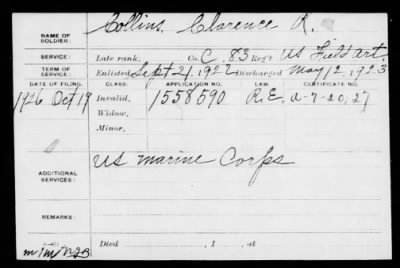 NAME OF SOLDIER: Collins, Clarence K.
SERVICE: Late rank, Co. C, 83 Reg't US Field Art.
TERM OF SERVICE: Enlisted Sept 21, 1922 Discharged May 12, 1923
DATE OF FILING. CLASS. APPLICATION NO. LAW. CERTIFICATE NO.
1926 Oct 19 Invalid, 1558590 R.E. a-7-20, 27
Widow,
Minor,
ADDITIONAL SERVICES: US Marine Corps
REMARKS:
Died , 1 , at